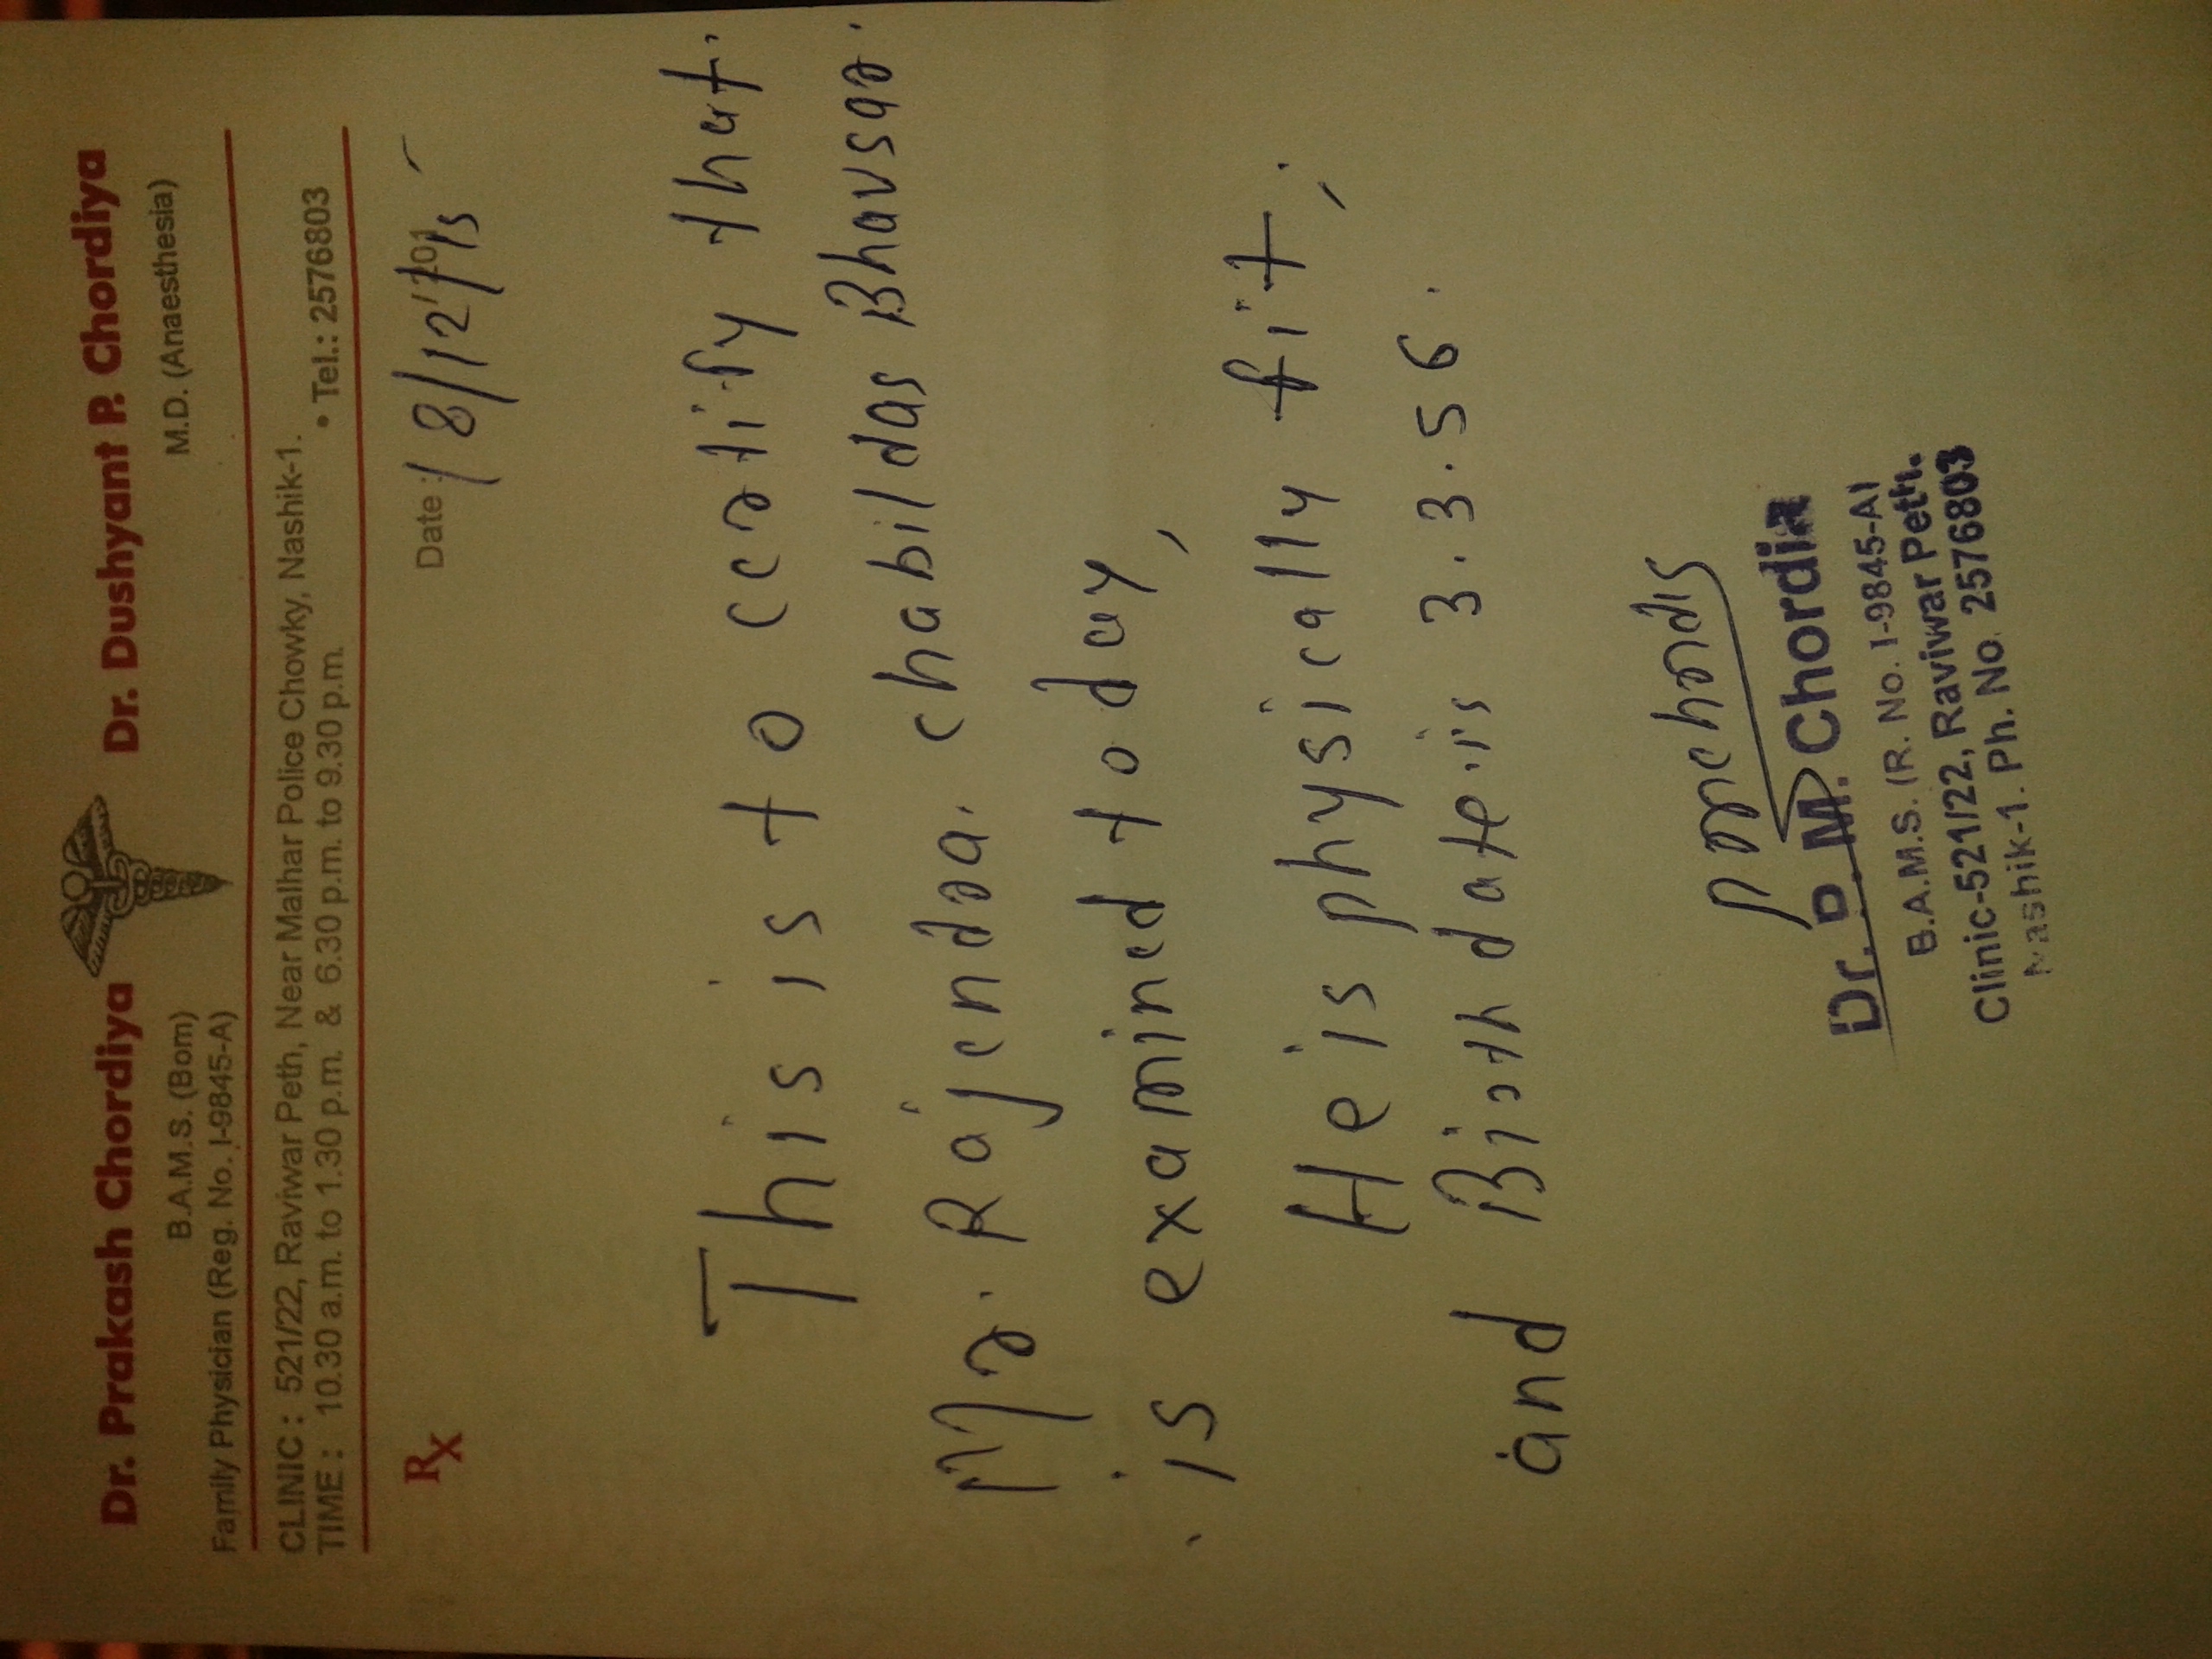 Dr. Prakash Chordiya Dr. Dushyant P. Chordiya
B.A.M.S. (Bom) M.D. (Anaesthesia)
Family Physician (Reg. No. I-9845-A)
CLINIC : 521/22, Raviwar Peth, Near Malhar Police Chowky, Nashik-1.
TIME : 10.30 a.m. to 1.30 p.m. & 6.30 p.m. to 9.30 p.m. • Tel.: 2576803
Rx Date : 18/12/15
This is to certify that.
Mr. Rajendra. chabildas Bhavsar.
is examined today,
He is physically fit,
and Birth date is 3.3.56.
Dr. P. M. Chordia
B.A.M.S. (R. No. I-9845-A)
Clinic-521/22, Raviwar Peth.
Nashik-1. Ph. No. 2576803